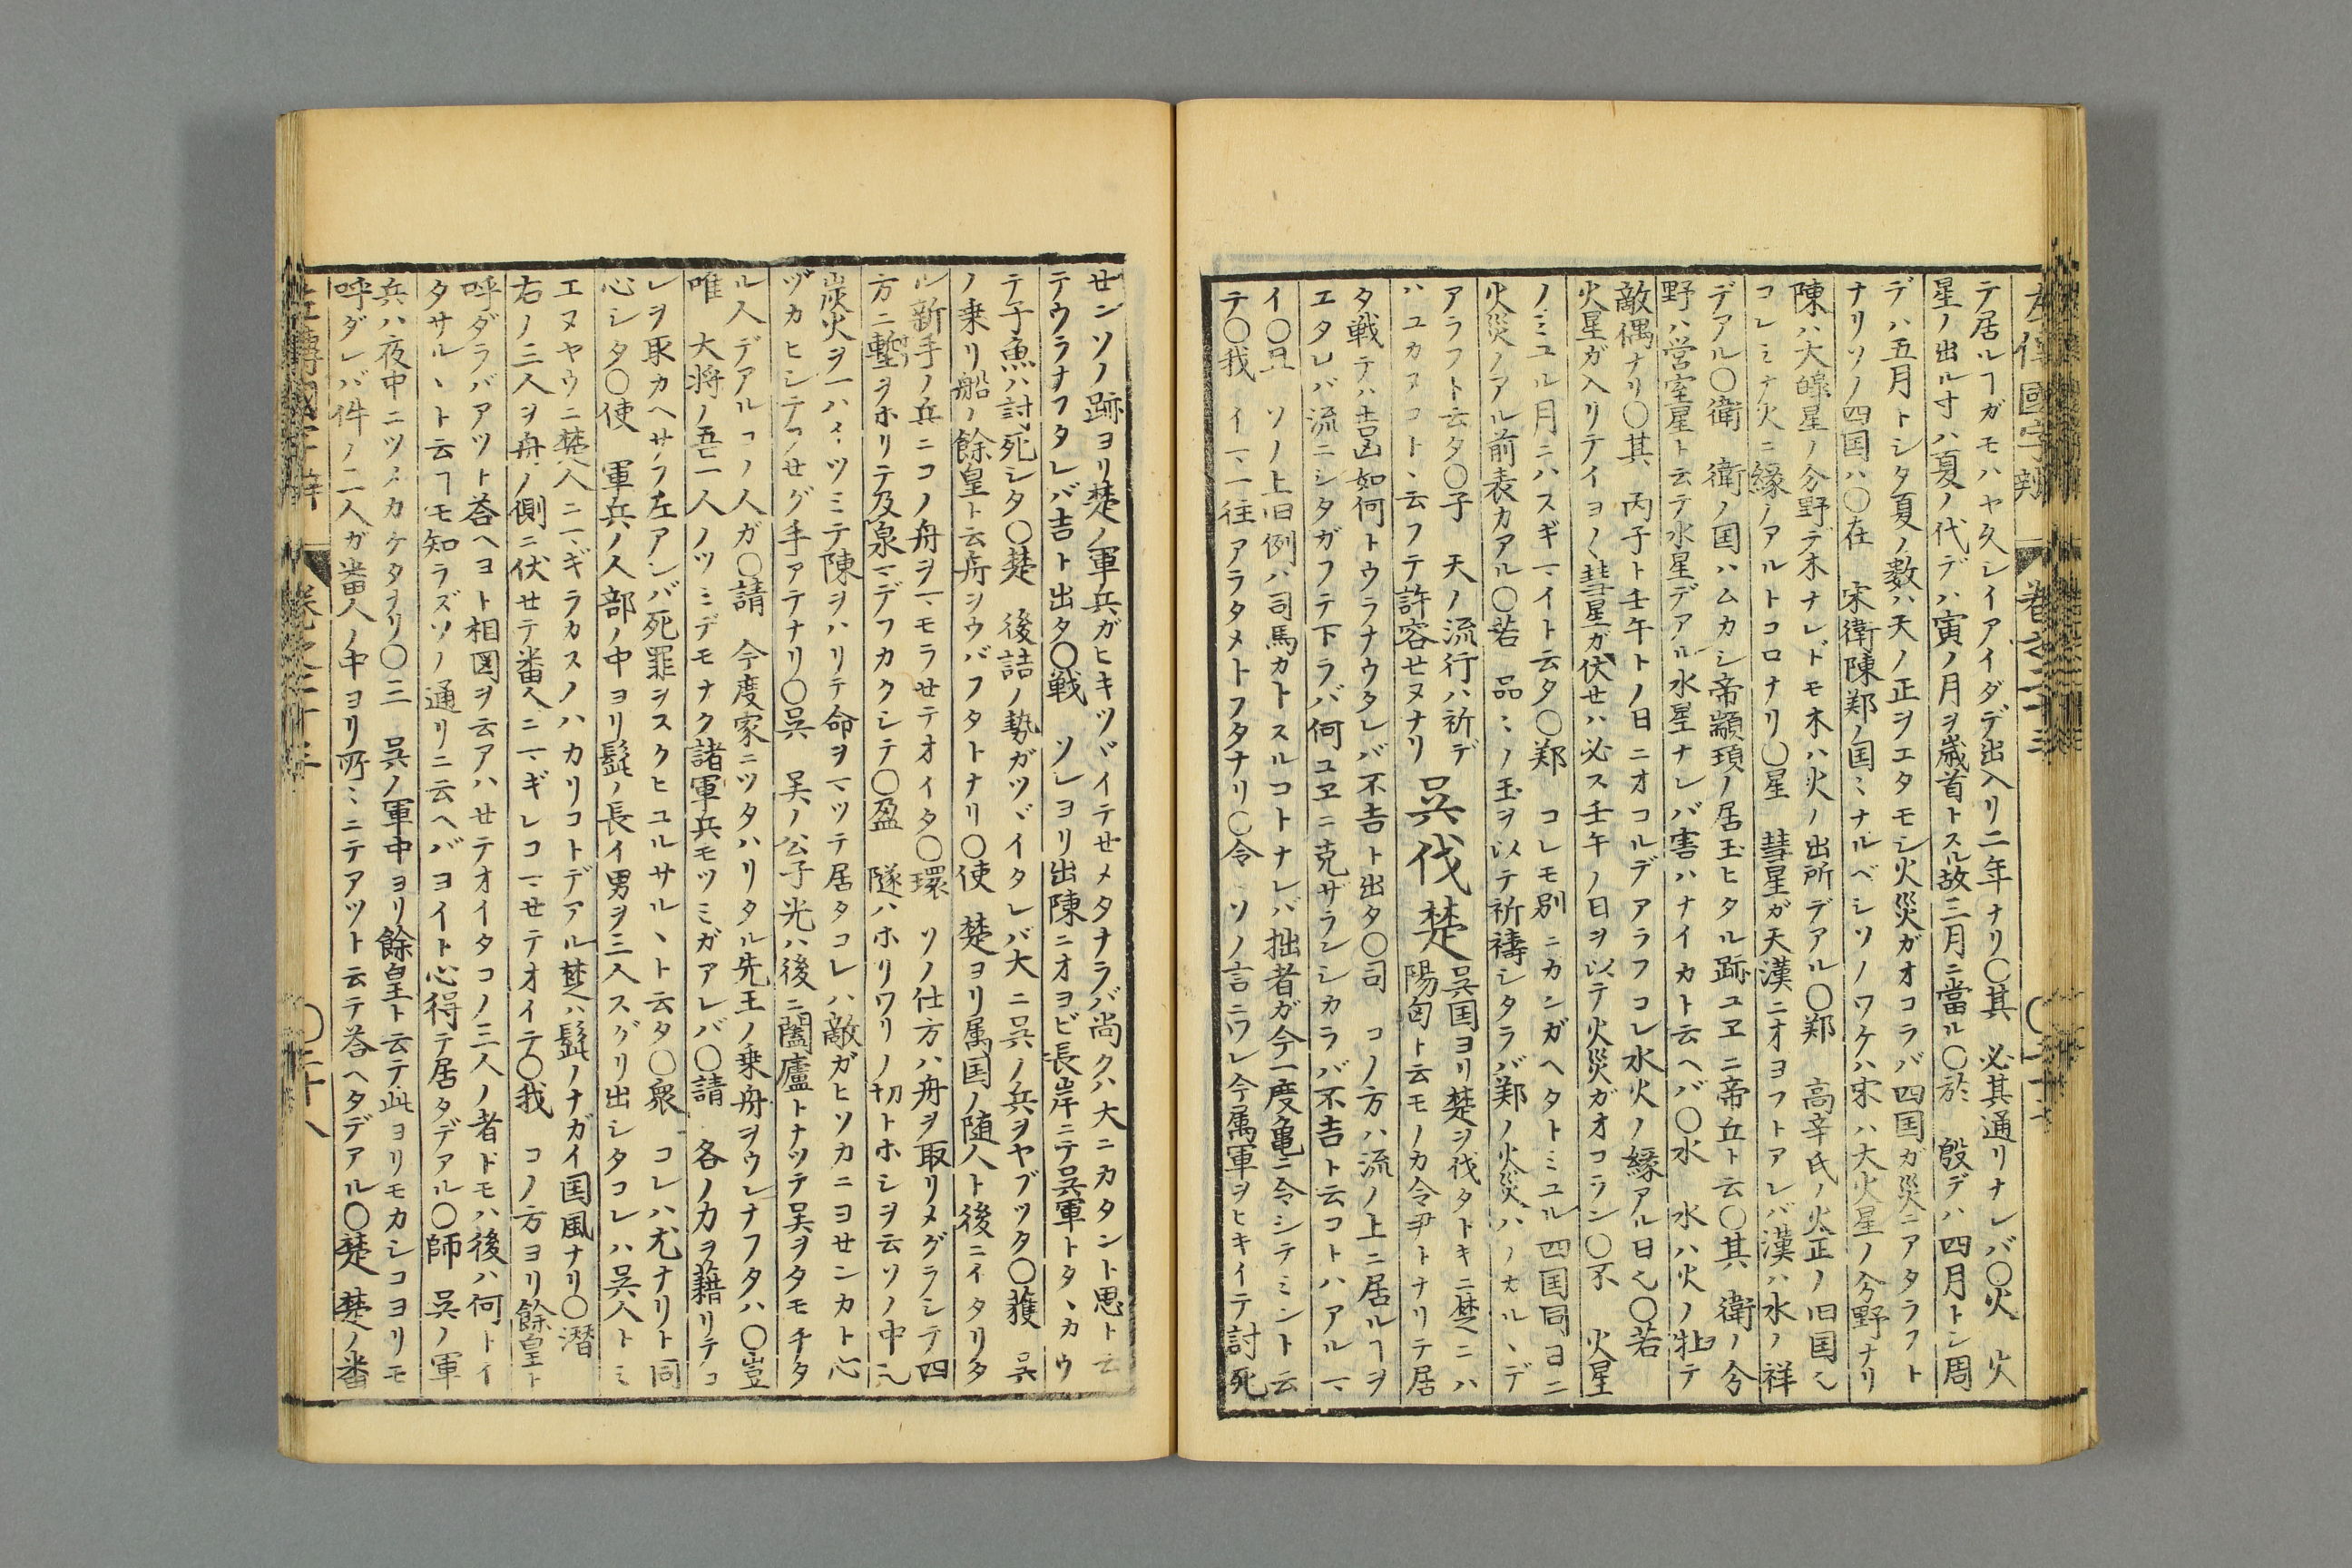 左傳國字辯 卷之二十三 〇二十七
テ居ルヿガモハヤ久シイアイダデ出入リ二年ナリ〇其 必其通リナレバ〇火 火
星ノ出ル寸ハ夏ノ代デハ寅ノ月ヲ歳首トスル故三月ニ當ル〇於 殷デハ四月トシ周
デハ五月トシタ夏ノ數ハ天ノ正ヲエタモシ火災ガオコラバ四国ガ災ニアタラフト
ナリソノ四国ハ〇在 宋衛陳郑ノ国ミナルベシソノワケハ宋ハ大火星ノ分野ナリ
陳ハ大皥星ノ分野デ木ナレドモ木ハ火ノ出所デアル〇郑 高辛氏ノ火正ノ旧国也
コレミナ火ニ縁ノアルトコロナリ〇星 彗星ガ天漢ニオヨフトアレバ漢ハ水ノ祥
デアル〇衛 衛ノ国ハムカシ帝顓頊ノ居玉ヒタル跡ユヱニ帝丘ト云〇其 衛ノ分
野ハ営室星ト云テ水星デアル水星ナレバ害ハナイカト云ヘバ〇水 水ハ火ノ牡テ
敵偶ナリ〇其 丙子ト壬午トノ日ニオコルデアラフコレ水火ノ縁アル日也〇若
火星ガ入リテイヨ〱彗星ガ伏セハ必ス壬午ノ日ヲ以テ火災ガオコラン〇不 火星
ノミユル月ニハスギマイト云タ〇郑 コレモ別ニカンガヘタトミユル四国同ヨニ
火災ノアル前表カアル〇若 品〻ノ玉ヲ以テ祈禱シタラバ郑ノ火災ハノカル丶デ
アラフト云タ〇子 天ノ流行ハ祈デ
ハユカヌコト丶云フテ許容セヌナリ
呉伐楚
呉国ヨリ楚ヲ伐タトキニ楚ニハ
陽匃ト云モノカ令尹トナリテ居
タ戦テハ吉凶如何トウラナウタレバ不吉ト出タ〇司 コノ方ハ流ノ上ニ居ルヿヲ
エタレバ流ニシタガフテ下ラバ何ユヱニ克ザランシカラバ不吉ト云コトハアルマ
イ〇且 ソノ上旧例ハ司馬カトスルコトナレバ拙者ガ今一度亀ニ令シテミント云
テ〇我 イマ一往アラタメトフタナリ〇令 ソノ言ニワレ今属軍ヲヒキイテ討死
せンソノ跡ヨリ楚ノ軍兵ガヒキツヾイテせメタナラバ尚クハ大ニカタント思ト云
テウラナフタレバ吉ト出タ〇戦 ソレヨリ出陳ニオヨビ長岸ニテ呉軍トタ丶カウ
テ子魚ハ討死シタ〇楚 後詰ノ勢ガツヾイタレバ大ニ呉ノ兵ヲヤブツタ〇獲 呉
ノ乗リ船ノ餘皇ト云舟ヲウバフタトナリ〇使 楚ヨリ属国ノ随人ト後ニイタリタ
ル新手ノ兵ニコノ舟ヲマモラせテオイタ〇環 ソノ仕方ハ舟ヲ取リメグラシテ四
方ニ塹ヲホリテ及泉マデフカクシテ〇盈 隧ハホリワリノ切トホシヲ云ソノ中也
炭火ヲ一ハイツミテ陳ヲハリテ命ヲマツテ居タコレハ敵ガヒソカニヨせンカト心
ヅカヒシテフせグ手アテナリ〇呉 呉ノ公子光ハ後ニ闔廬トナツテ呉ヲタモチタ
ル人デアルコノ人ガ〇請 今度家ニツタハリタル先王ノ乗舟ヲウレナフタハ〇豈
唯 大将ノ吾一人ノツミデモナク諸軍兵モツミガアレバ〇請 各ノカヲ藉リテコ
レヲ取カヘサフ左アンバ死罪ヲスクヒユルサル丶ト云タ〇衆 コレハ尤ナリト同
心シタ〇使 軍兵ノ人部ノ中ヨリ髭ノ長イ男ヲ三人スグリ出シタコレハ呉人トミ
エヌヤウニ楚人ニマギラカスノハカリコトデアル楚ハ髭ノナガイ国風ナリ〇潛
右ノ三人ヲ舟ノ側ニ伏せテ番人ニマギレコマせテオイテ〇我 コノ方ヨリ餘皇ト
呼ダラバアツト荅ヘヨト相図ヲ云アハせテオイタコノ三人ノ者ドモハ後ハ何トイ
タサル丶ト云ヿモ知ラズソノ通リニ云ヘバヨイト心得テ居タデアル〇師 呉ノ軍
兵ハ夜中ニツメカケタヲリ〇三 呉ノ軍中ヨリ餘皇ト云テ此ヨリモカシコヨリモ
呼ダレバ件ノ二人ガ番人ノ中ヨリ所〻ニテアツト云テ荅ヘタデアル〇楚 楚ノ番
左傳國字辯 卷之二十三 〇二十八